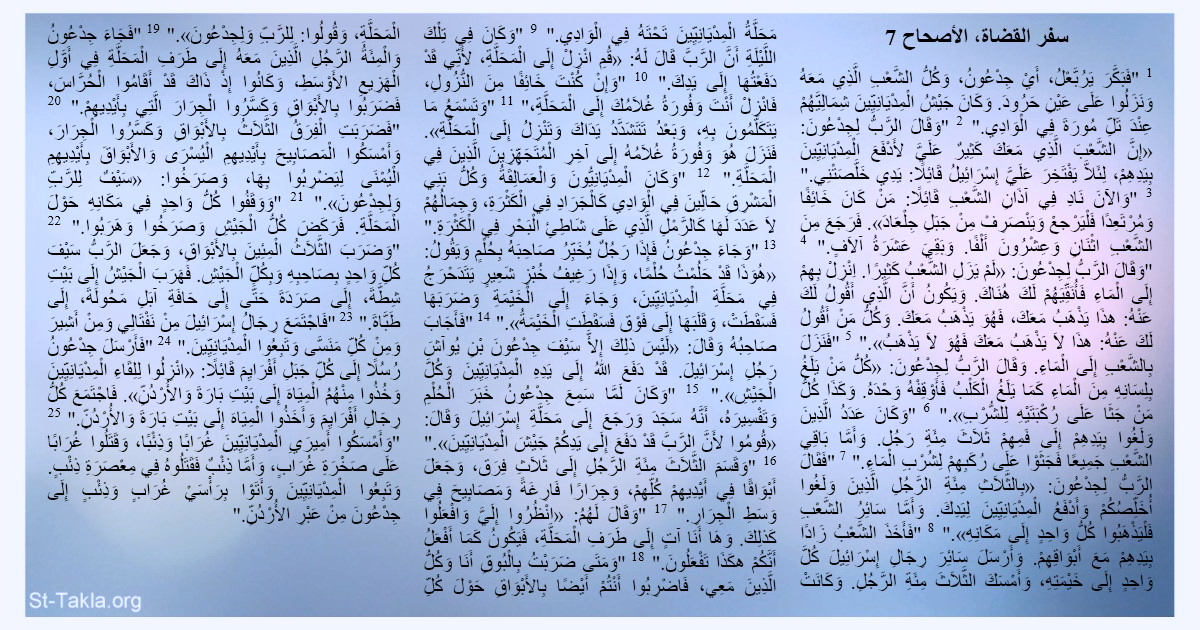 سفر القضاة، الأصحاح 7
1 "فَبَكَّرَ يَرُبَّعْلُ، أَيْ جِدْعُونُ، وَكُلُّ الشَّعْبِ الَّذِي مَعَهُ
وَنَزَلُوا عَلَى عَيْنِ حَرُودَ. وَكَانَ جَيْشُ الْمِدْيَانِيِّينَ شِمَالِيَّهُمْ
عِنْدَ تَلِّ مُورَةَ فِي الْوَادِي." 2 "وَقَالَ الرَّبُّ لِجِدْعُونَ:
«إِنَّ الشَّعْبَ الَّذِي مَعَكَ كَثِيرٌ عَلَيَّ لأَدْفَعَ الْمِدْيَانِيِّينَ
بِيَدِهِمْ، لِئَلاَّ يَفْتَخِرَ عَلَيَّ إِسْرَائِيلُ قَائِلاً: يَدِي خَلَّصَتْنِي."
3 "وَالآنَ نَادِ فِي آذَانِ الشَّعْبِ قَائِلاً: مَنْ كَانَ خَائِفًا
وَمُرْتَعِدًا فَلْيَرْجعْ وَيَنْصَرِفْ مِنْ جَبَلِ جِلْعَادَ». فَرَجَعَ مِنَ
الشَّعْبِ اثْنَانِ وَعِشْرُونَ أَلْفًا. وَبَقِيَ عَشَرَةُ آلاَفٍ." 4
"وَقَالَ الرَّبُّ لِجِدْعُونَ: «لَمْ يَزَلِ الشَّعْبُ كَثِيرًا. اِنْزِلْ بِهِمْ
إِلَى الْمَاءِ فَأُنَقِّيَهُمْ لَكَ هُنَاكَ. وَيَكُونُ أَنَّ الَّذِي أَقُولُ لَكَ
عَنْهُ: هذَا يَذْهَبُ مَعَكَ، فَهُوَ يَذْهَبُ مَعَكَ. وَكُلُّ مَنْ أَقُولُ
لَكَ عَنْهُ: هذَا لاَ يَذْهَبُ مَعَكَ فَهُوَ لاَ يَذْهَبُ»." 5 "فَنَزَلَ
بِالشَّعْبِ إِلَى الْمَاءِ. وَقَالَ الرَّبُّ لِجِدْعُونَ: «كُلُّ مَنْ يَلَغُ
بِلِسَانِهِ مِنَ الْمَاءِ كَمَا يَلَغُ الْكَلْبُ فَأَوْقِفْهُ وَحْدَهُ. وَكَذَا كُلُّ
مَنْ جَثَا عَلَى رُكْبَتَيْهِ لِلشُّرْبِ»." 6 "وَكَانَ عَدَدُ الَّذِينَ
وَلَغُوا بِيَدِهِمْ إِلَى فَمِهِمْ ثَلاَثَ مِئَةِ رَجُل. وَأَمَّا بَاقِي
الشَّعْبِ جَمِيعًا فَجَثَوْا عَلَى رُكَبِهِمْ لِشُرْبِ الْمَاءِ." 7 "فَقَالَ
الرَّبُّ لِجِدْعُونَ: «بِالثَّلاَثِ مِئَةِ الرَّجُلِ الَّذِينَ وَلَغُوا
أُخَلِّصُكُمْ وَأَدْفَعُ الْمِدْيَانِيِّينَ لِيَدِكَ. وَأَمَّا سَائِرُ الشَّعْبِ
فَلْيَذْهَبُوا كُلُّ وَاحِدٍ إِلَى مَكَانِهِ»." 8 "فَأَخَذَ الشَّعْبُ زَادًا
بِيَدِهِمْ مَعَ أَبْوَاقِهِمْ. وَأَرْسَلَ سَائِرَ رِجَالِ إِسْرَائِيلَ كُلَّ
وَاحِدٍ إِلَى خَيْمَتِهِ، وَأَمْسَكَ الثَّلاَثَ مِئَةِ الرَّجُلِ. وَكَانَتْ
مَحَلَّةُ الْمِدْيَانِيِّينَ تَحْتَهُ فِي الْوَادِي." 9 "وَكَانَ فِي تِلْكَ
اللَّيْلَةِ أَنَّ الرَّبَّ قَالَ لَهُ: «قُمِ انْزِلْ إِلَى الْمَحَلَّةِ، لأَنِّي قَدْ
دَفَعْتُهَا إِلَى يَدِكَ." 10 "وَإِنْ كُنْتَ خَائِفًا مِنَ النُّزُولِ،
فَانْزِلْ أَنْتَ وَفُورَةُ غُلاَمُكَ إِلَى الْمَحَلَّةِ،" 11 "وَتَسْمَعُ مَا
يَتَكَلَّمُونَ بِهِ، وَبَعْدُ تَتَشَدَّدُ يَدَاكَ وَتَنْزِلُ إِلَى الْمَحَلَّةِ».
فَنَزَلَ هُوَ وَفُورَةُ غُلاَمُهُ إِلَى آخِرِ الْمُتَجَهِّزِينَ الَّذِينَ فِي
الْمَحَلَّةِ." 12 "وَكَانَ الْمِدْيَانِيُّونَ وَالْعَمَالِقَةُ وَكُلُّ بَنِي
الْمَشْرِقِ حَالِّينَ فِي الْوَادِي كَالْجَرَادِ فِي الْكَثْرَةِ، وَجِمَالُهُمْ
لاَ عَدَدَ لَهَا كَالرَّمْلِ الَّذِي عَلَى شَاطِئِ الْبَحْرِ فِي الْكَثْرَةِ."
13 "وَجَاءَ جِدْعُونُ فَإِذَا رَجُلٌ يُخَبِّرُ صَاحِبَهُ بِحُلْمٍ وَيَقُولُ:
«هُوَذَا قَدْ حَلُمْتُ حُلْمًا، وَإِذَا رَغِيفُ خُبْزِ شَعِيرٍ يَتَدَحْرَجُ
فِي مَحَلَّةِ الْمِدْيَانِيِّينَ، وَجَاءَ إِلَى الْخَيْمَةِ وَضَرَبَهَا
فَسَقَطَتْ، وَقَلَبَهَا إِلَى فَوْقُ فَسَقَطَتِ الْخَيْمَةُ»." 14 "فَأَجَابَ
صَاحِبُهُ وَقَالَ: «لَيْسَ ذلِكَ إِلاَّ سَيْفَ جِدْعُونَ بْنِ يُوآشَ
رَجُلِ إِسْرَائِيلَ. قَدْ دَفَعَ اللهُ إِلَى يَدِهِ الْمِدْيَانِيِّينَ وَكُلَّ
الْجَيْشِ»." 15 "وَكَانَ لَمَّا سَمِعَ جِدْعُونُ خَبَرَ الْحُلْمِ
وَتَفْسِيرَهُ، أَنَّهُ سَجَدَ وَرَجَعَ إِلَى مَحَلَّةِ إِسْرَائِيلَ وَقَالَ:
«قُومُوا لأَنَّ الرَّبَّ قَدْ دَفَعَ إِلَى يَدِكُمْ جَيْشَ الْمِدْيَانِيِّينَ»."
16 "وَقَسَمَ الثَّلاَثَ مِئَةِ الرَّجُلِ إِلَى ثَلاَثِ فِرَق، وَجَعَلَ
أَبْوَاقًا فِي أَيْدِيهِمْ كُلِّهِمْ، وَجِرَارًا فَارِغَةً وَمَصَابِيحَ فِي
وَسَطِ الْجِرَارِ." 17 "وَقَالَ لَهُمُ: «انْظُرُوا إِلَيَّ وَافْعَلُوا
كَذلِكَ. وَهَا أَنَا آتٍ إِلَى طَرَفِ الْمَحَلَّةِ، فَيَكُونُ كَمَا أَفْعَلُ
أَنَّكُمْ هكَذَا تَفْعَلُونَ." 18 "وَمَتَى ضَرَبْتُ بِالْبُوقِ أَنَا وَكُلُّ
الَّذِينَ مَعِي، فَاضْرِبُوا أَنْتُمْ أَيْضًا بِالأَبْوَاقِ حَوْلَ كُلِّ
الْمَحَلَّةِ، وَقُولُوا: لِلرَّبِّ وَلِجِدْعُونَ»." 19 "فَجَاءَ جِدْعُونُ
وَالْمِئَةُ الرَّجُلِ الَّذِينَ مَعَهُ إِلَى طَرَفِ الْمَحَلَّةِ فِي أَوَّلِ
الْهَزِيعِ الأَوْسَطِ، وَكَانُوا إِذْ ذَاكَ قَدْ أَقَامُوا الْحُرَّاسَ،
فَضَرَبُوا بِالأَبْوَاقِ وَكَسَّرُوا الْجِرَارَ الَّتِي بِأَيْدِيهِمْ." 20
"فَضَرَبَتِ الْفِرَقُ الثَّلاَثُ بِالأَبْوَاقِ وَكَسَّرُوا الْجِرَارَ،
وَأَمْسَكُوا الْمَصَابِيحَ بِأَيْدِيهِمِ الْيُسْرَى وَالأَبْوَاقَ بِأَيْدِيهِمِ
الْيُمْنَى لِيَضْرِبُوا بِهَا، وَصَرَخُوا: «سَيْفٌ لِلرَّبِّ
وَلِجِدْعُونَ»." 21 "وَوَقَفُوا كُلُّ وَاحِدٍ فِي مَكَانِهِ حَوْلَ
الْمَحَلَّةِ. فَرَكَضَ كُلُّ الْجَيْشِ وَصَرَخُوا وَهَرَبُوا." 22
"وَضَرَبَ الثَّلاَثُ الْمِئِينَ بِالأَبْوَاقِ، وَجَعَلَ الرَّبُّ سَيْفَ
كُلِّ وَاحِدٍ بِصَاحِبِهِ وَبِكُلِّ الْجَيْشِ. فَهَرَبَ الْجَيْشُ إِلَى بَيْتِ
شِطَّةَ، إِلَى صَرَدَةَ حَتَّى إِلَى حَافَةِ آبَلِ مَحُولَةَ، إِلَى
طَبَّاةَ." 23 "فَاجْتَمَعَ رِجَالُ إِسْرَائِيلَ مِنْ نَفْتَالِي وَمِنْ أَشِيرَ
وَمِنْ كُلِّ مَنَسَّى وَتَبِعُوا الْمِدْيَانِيِّينَ." 24 "فَأَرْسَلَ جِدْعُونُ
رُسُلاً إِلَى كُلِّ جَبَلِ أَفْرَايِمَ قَائِلاً: «انْزِلُوا لِلِقَاءِ الْمِدْيَانِيِّينَ
وَخُذُوا مِنْهُمُ الْمِيَاهَ إِلَى بَيْتِ بَارَةَ وَالأُرْدُنِّ». فَاجْتَمَعَ كُلُّ
رِجَالِ أَفْرَايِمَ وَأَخَذُوا الْمِيَاهَ إِلَى بَيْتِ بَارَةَ وَالأُرْدُنِّ." 25
"وَأَمْسَكُوا أَمِيرَيِ الْمِدْيَانِيِّينَ غُرَابًا وَذِئْبًا، وَقَتَلُوا غُرَابًا
عَلَى صَخْرَةِ غُرَابٍ، وَأَمَّا ذِئْبٌ فَقَتَلُوهُ فِي مِعْصَرَةِ ذِئْبٍ.
وَتَبِعُوا الْمِدْيَانِيِّينَ وَأَتَوْا بِرَأْسَيْ غُرَابٍ وَذِئْبٍ إِلَى
جِدْعُونَ مِنْ عَبْرِ الأُرْدُنِّ."
St-Takla.org